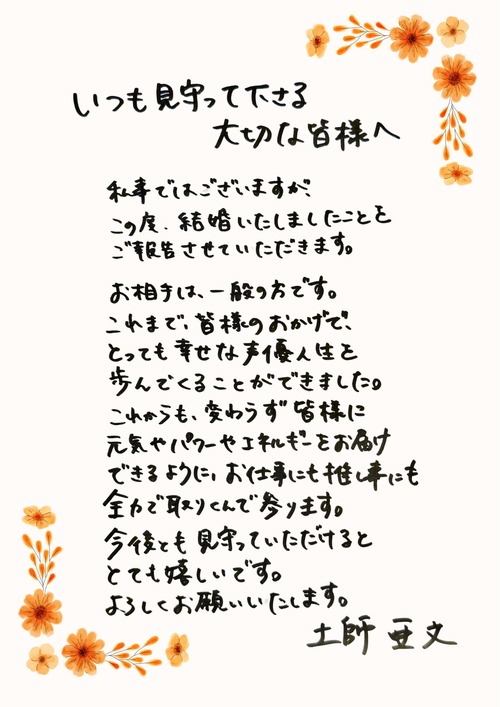 いつも見守って下さる
大切な皆様へ
私事ではございますが、
この度、結婚いたしましたことを
ご報告させていただきます。
お相手は、一般の方です。
これまで、皆様のおかげで、
とっても幸せな声優人生を
歩んでくることができました。
これからも、変わらず皆様に
元気やパワーやエネルギーをお届け
できるように、お仕事にも推し事にも
全力で取りくんで参ります。
今後とも見守っていただけると
とても嬉しいです。
よろしくお願いいたします。
土師亜文